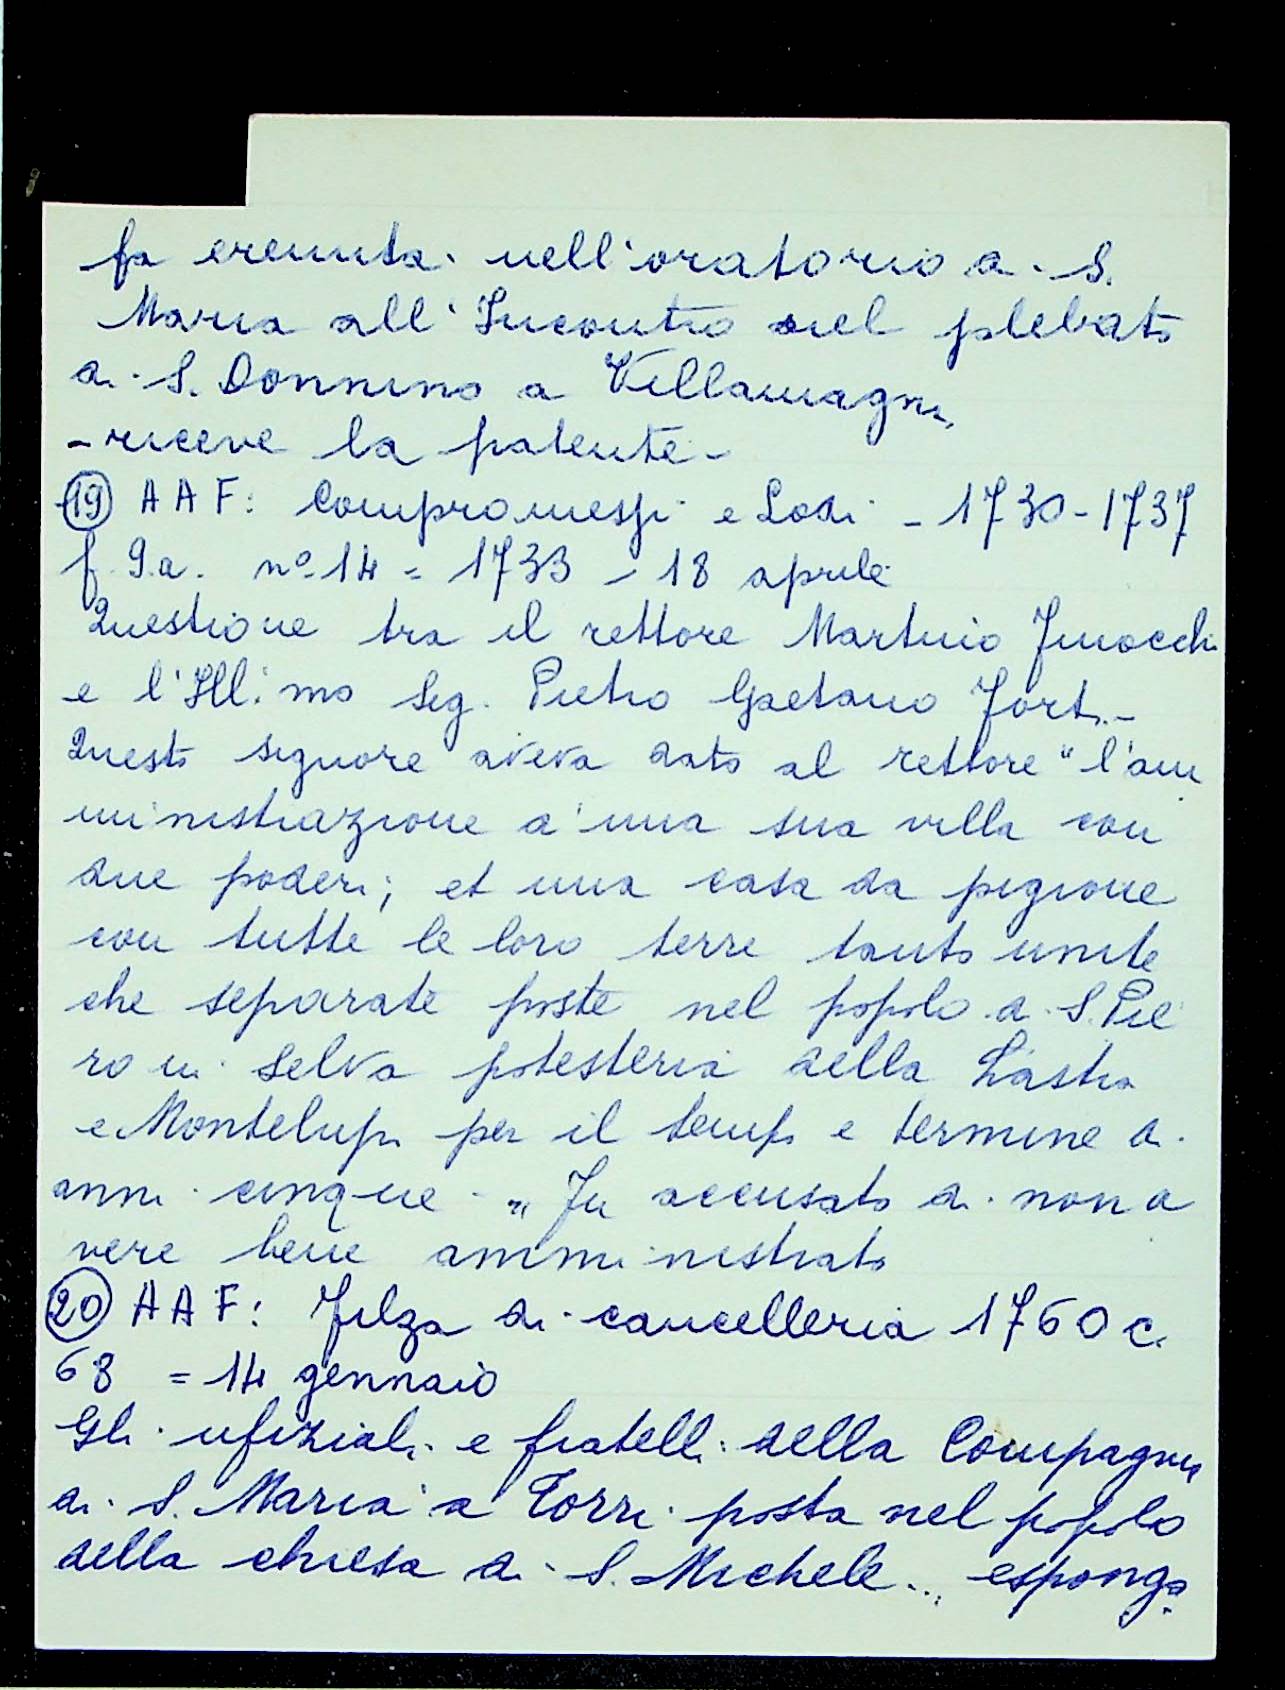 fa eremita nell'oratorio di S.
Maria all'Incontro nel plebato
di S. Donnino a Villamagna,
- riceve la patente -
19 A A F: Compromessi e Lodi - 1730-1737
f. 9.a. nº 14 = 1733 - 18 aprile
Questione tra il rettore Martino Finocchi
e l'Ill.mo Sig. Pietro Gaetano Forti -
Questo signore aveva dato al rettore "l'am
ministrazione d'una sua villa con
due poderi; et una casa da pigione
con tutte le loro terre tanto unite
che separate poste nel popolo di S. Pie
ro in Selva potesteria della Lastra
e Montelupo per il tempo e termine di
anni cinque " Fu accusato di non a
vere bene amministrato
20 A A F: Filza di cancelleria 1760 c.
68 = 14 gennaio
Gli ufiziali e fratelli della Compagnia
di S. Maria a Torri posta nel popolo
della chiesa di S. Michele... espongo